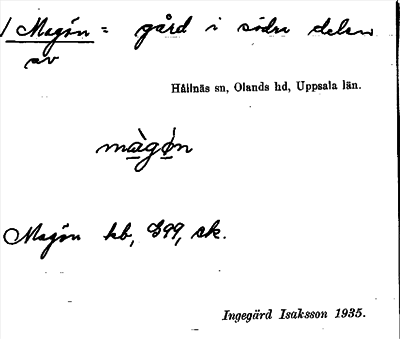 1 Magön = gård i södra delen
av
Hållnäs sn, Olands hd, Uppsala län.
màgøn
Magön kb, E99, sk.
Ingegärd Isaksson 1935.